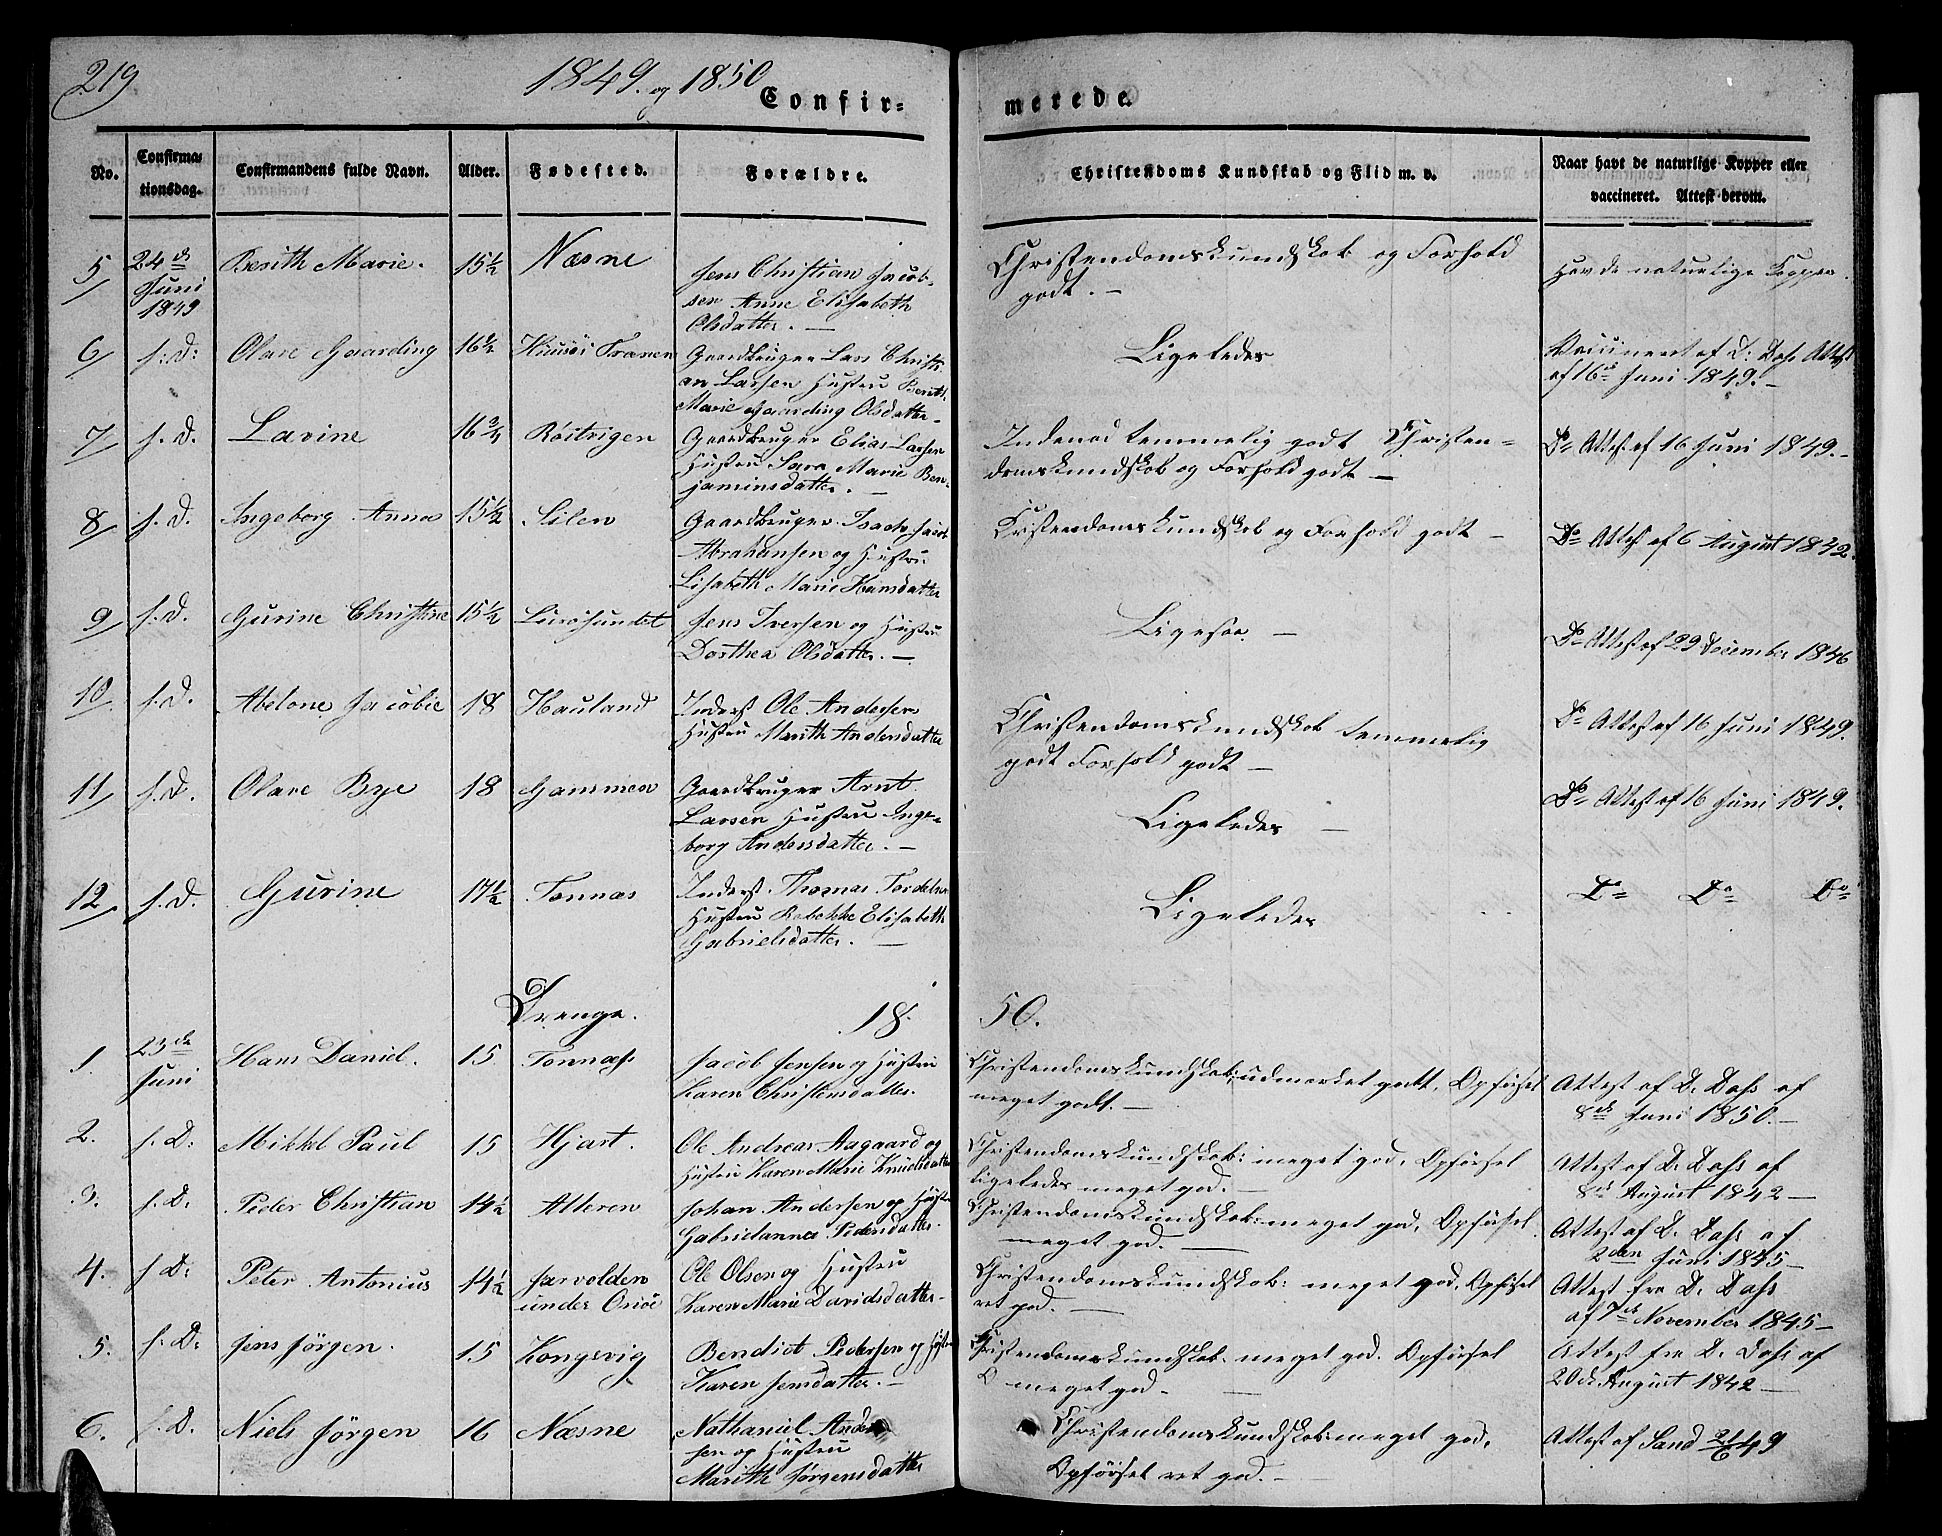 219
1849. og 1850
Confir=
merede.
No.
Confirma-
tionsdag.
Confirmandens fulde Navn.
Alder.
Fødested.
Forældre.
Christendoms Kundskab og Flid m. v.
Naar havt de naturlige Kopper eller
vaccineret. Attest herom.
5/ 24de Berith Marie. 15½ Næsne
Juni
1849
Jens Christian Jacob-
sen Anne Elisabeth
Olsdatter. —
Christendomskundskab og Forhold
godt. —
Hav de naturlige Kopper.
6/ s: D: Olave Gaarding 16½ Tranen
Gaardbruger Lars Christi-
an Larsen Hustru Berith
Marie Gaarding Olsdatter-
Ligeledes
Vaccineret af D: Dahs Attest
af 16de Juni 1849. -
7/ s. D. Lavine 16¾
Gaardbruger Elias Larsen
Hustru Sara Marie Ben-
jaminsdatter. —
Indenad temmelig godt Christen-
domskundskab og Forhold godt —
Do Attest af 16 Juni 1849. -
8/ s. D. Ingeborg Anna 15½ Silen
Gaardbruger Isach Jacob
Abrahamsen og Hustru
Lisabeth Marie Hansdatter
Kristendomskundskab og Forhold godt —
Do Attest af 6 August 1842.
9/ s. D. Gurine Christine 15½ Lurösundet
Jens Iversen og Hustru
Dorthea Olsdatter. —
Ligesaa —
Do Attest af 29 December 1846
10/ s. D. Abelone Jacobie 18 Hauland
Inderst Ole Andersen
Hustru Marith Andersdatter
Christendomskundskab temmelig
godt Forhold godt —
Do Attest af 16 Juni 1849.
11/ s. D. Olave Bye 18 Gammen
Gaardbruger Arnt
Larsen Hustru Inge-
borg Andersdatter. —
Ligeledes —
Do Attest af 16 Juni 1849.
12/ s. D. Gurine 17½ Tonnæs
Inderst Thomas
Hustru Rebekke Elisabeth
Gabrielsdatter. —
Ligeledes
Do Do Do
Drenge.
18
50.
1. 23de Hans Daniel. 15 Tonnæs
Juni
Jacob Jensen og Hustru
Karen Christensdatter.
Christendomskundskab: udmærket godt, Opførsel
meget godt. —
Attest af D. Dahs af
8de Juni 1850. —
2. s. D: Mikkel Paul 15 Hjart.
Ole Andreas Aagaard og
Hustru Karen Marie Knudsdatter
Christendomskundskab: meget god, Opførsel
ligeledes meget god. —
Attest af D. Dahs af
8de August 1842 —
3. s. D. Peder Christian 14½ Alteren
Johan Andersen og Hustru
Gabrielanna Pedersdatter.
Christendomskundskab: meget god, Opførsel
meget god. —
Attest af D. Dahs af
2den Juni 1845 —
4. s D: Peter Antonius 14½ Jarvolden
under Onöe
Ole Olsen og Hustru
Karen Marie Davidsdatter-
Christendomskundskab: meget god, Opførsel
ret god. —
Attest fra D. Dahs
af 7de November 1845 —
5. s. D: Jens Jörgen. 15 Kongsvig
Bendict Pedersen og Hustru
Karen Jensdatter. —
Christendomskundskab: meget god. Opførsel
meget god. —
Attest fra D. Dahs af
20de August 1842 —
6. s. D. Niels Jörgen 16 Næsne
Nathanael Ander
sen og Hustru
Marith Jörgensdatter
Christendomskundskab: meget god,
Opførsel ret god. —
Attest af Sand 21/6 49